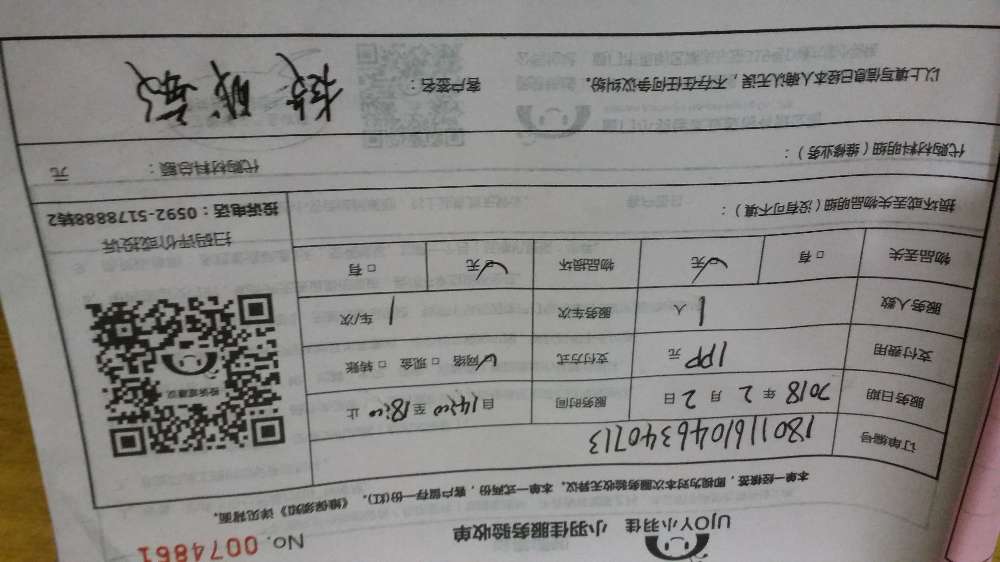 UJOY小羽佳 小羽佳服务验收单 No. 0074861
本单一经核签，即视为对本次服务验收无异议。本单一式两份，客户留存一份(红)，《维保须知》详见背面。
订单编号 180116104634071 3
服务日期 2018 年 2 月 2 日 服务时间 自 14:00 至 18:00 止
支付费用 199 元 支付方式 ☑网络 □ 现金 □ 转账
服务人数 1 人 服务车次 1 车/次
物品丢失 □ 有 ☑无 物品损坏 ☑无 □ 有
投诉或建议
扫码评价或投诉
投诉电话：0592-5178888转2
损坏或丢失物品明细（没有可不填）：
代购材料明细（维修业务）： 代购材料总额： 元
以上填写信息已经本人确认无误，不存在任何争议纠纷。 客户签名：